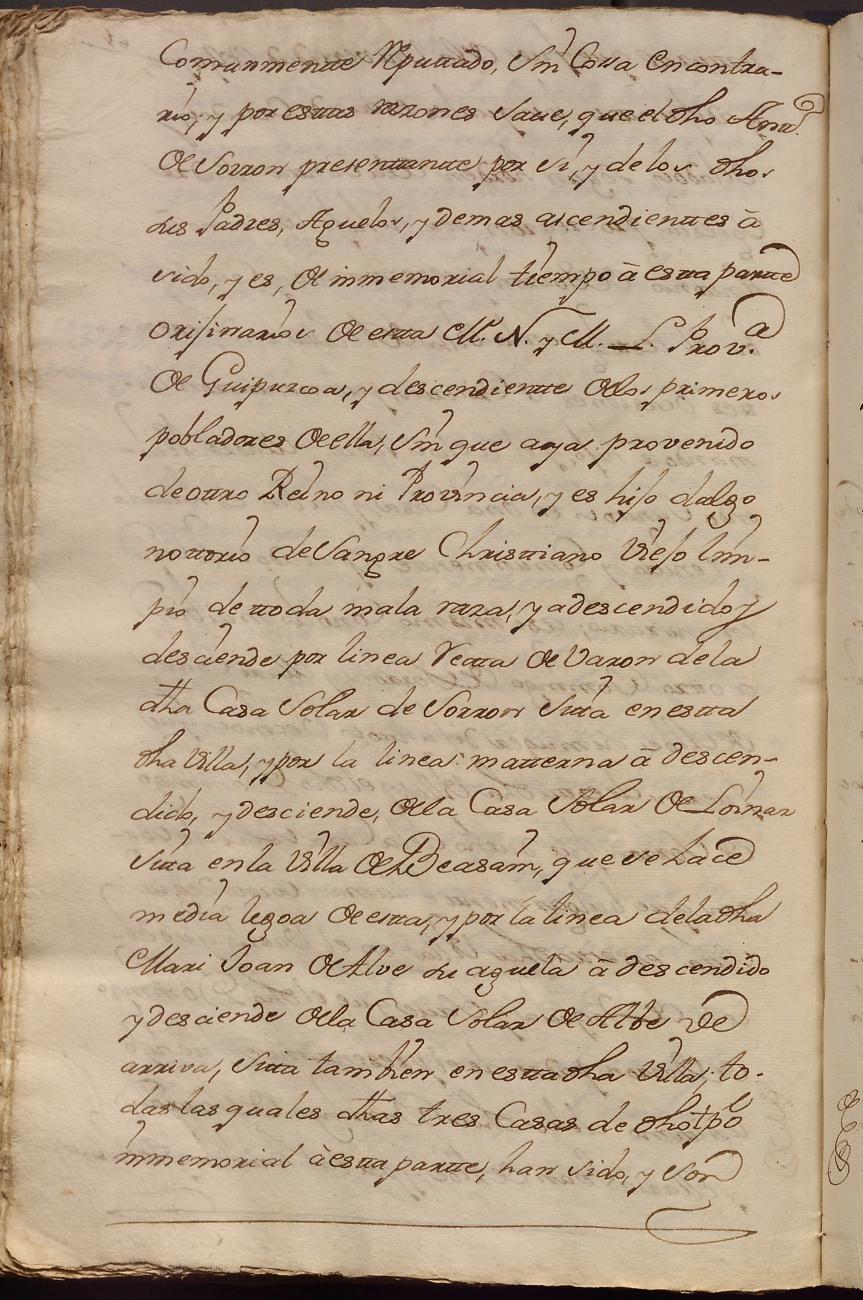 Comunmentte Reputtado, sin Cosa en contra-
rio, y por esttas razones save, que el dho Antt.º
de Sorron presenttantte por si, y de los dhos
sus Padres, Aguelos, y demas ascendienttes à
sido, y es, de inmemorial tiempo à estta partte
orijinarios de estta M. N. y M. L. Prov.ª
de Guipuzcoa, y descendientte de los primeros
pobladores de ella, sin que aya provenido
de ottro Reino ni Provincia, y es hijo dalgo
nottorio de Sangre Christtiano Viejo lim-
pio de ttoda mala raza, y a descendido y
desciende por linea Rectta de Varon de la
dha Casa Solar de Sorron sitta en estta
dha Villa, y por la linea matterna à descen-
dido, y desciende, de la Casa Solar de Loinaz
sitta en la Villa de Beasain, que se hace
media legoa de estta, y por la linea de la dha
Mari Joan de Alve su aguela à descendido
y desciende de la Casa Solar de Albe de
arriva, sitta tambien en estta dha Villa; to-
das las quales dhas tres Casas de dho tpo
inmemorial à estta partte, han sido, y son